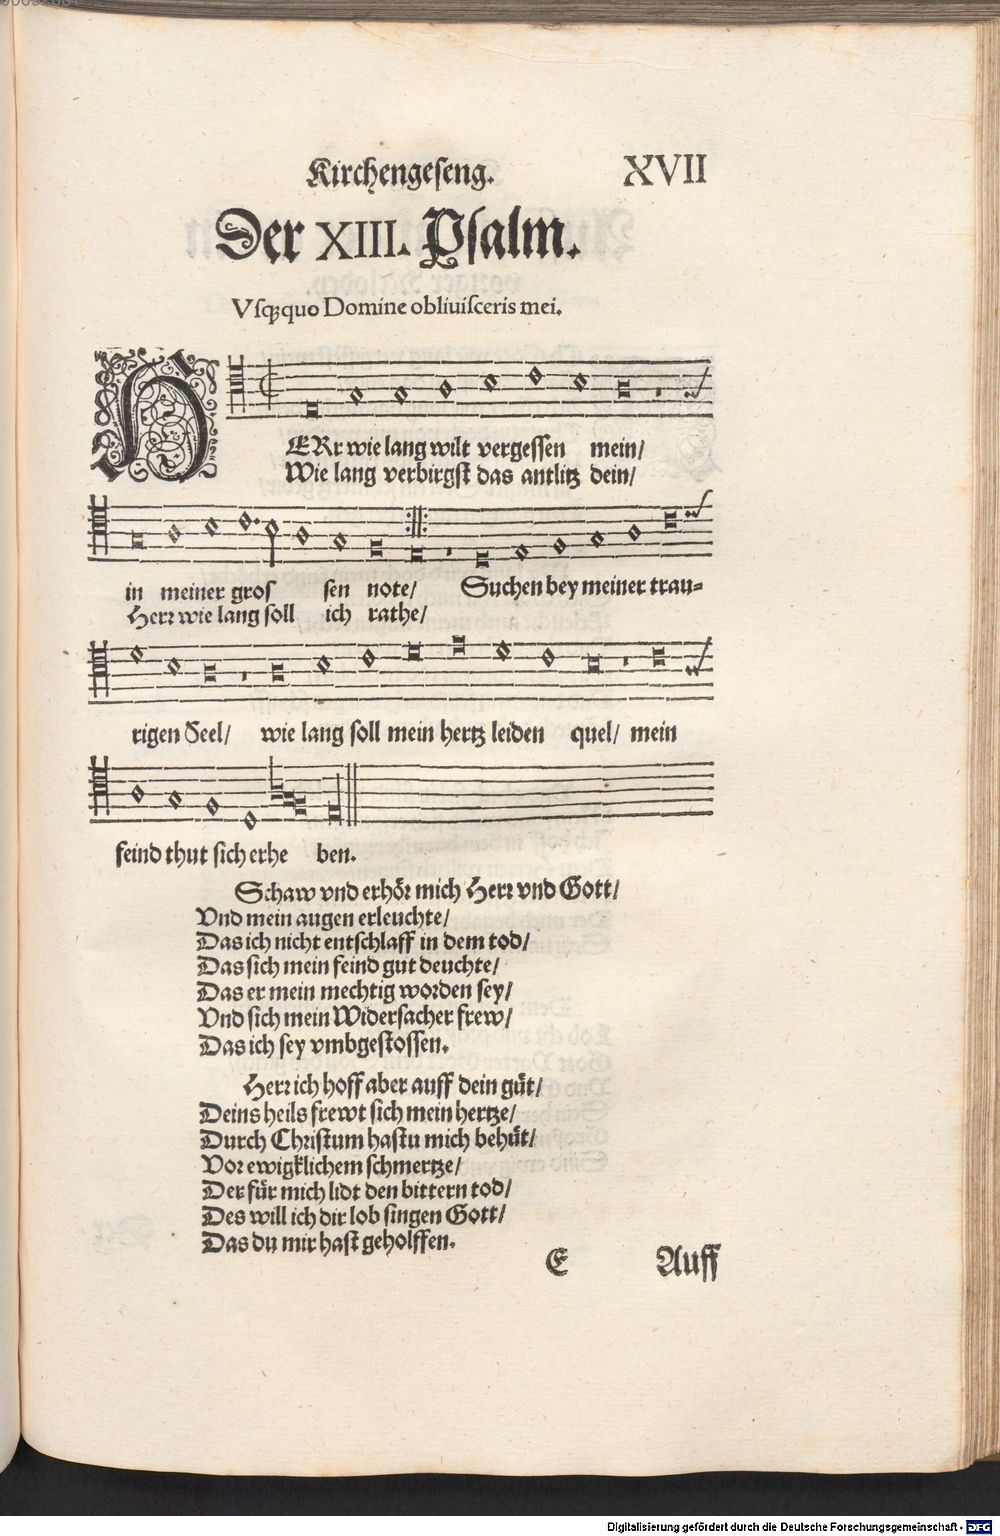 Kirchengeseng. XVII
Der XIII. Psalm.
Vsq̃quo Domine obliuisceris mei.
HERr wie lang wilt vergessen mein/
Wie lang verbirgst das antlitz dein/
in meiner gros sen note/ Suchen bey meiner trau-
Herr wie lang soll ich rathe/
rigen Seel/ wie lang soll mein hertz leiden quel/ mein
feind thut sich erhe ben.
Schaw vnd erhör mich Herr vnd Gott/
Vnd mein augen erleuchte/
Das ich nicht entschlaff in dem tod/
Das sich mein feind gut deuchte/
Das er mein mechtig worden sey/
Vnd sich mein Widersacher frew/
Das ich sey vmbgestossen.
Herr ich hoff aber auff dein güt/
Deins heils frewt sich mein hertze/
Durch Christum hastu mich behüt/
Vor ewigklichem schmertze/
Der für mich lidt den bittern tod/
Des will ich dir lob singen Gott/
Das du mir hast geholffen.
E Auff
Digitalisierung gefördert durch die Deutsche Forschungsgemeinschaft - DFG